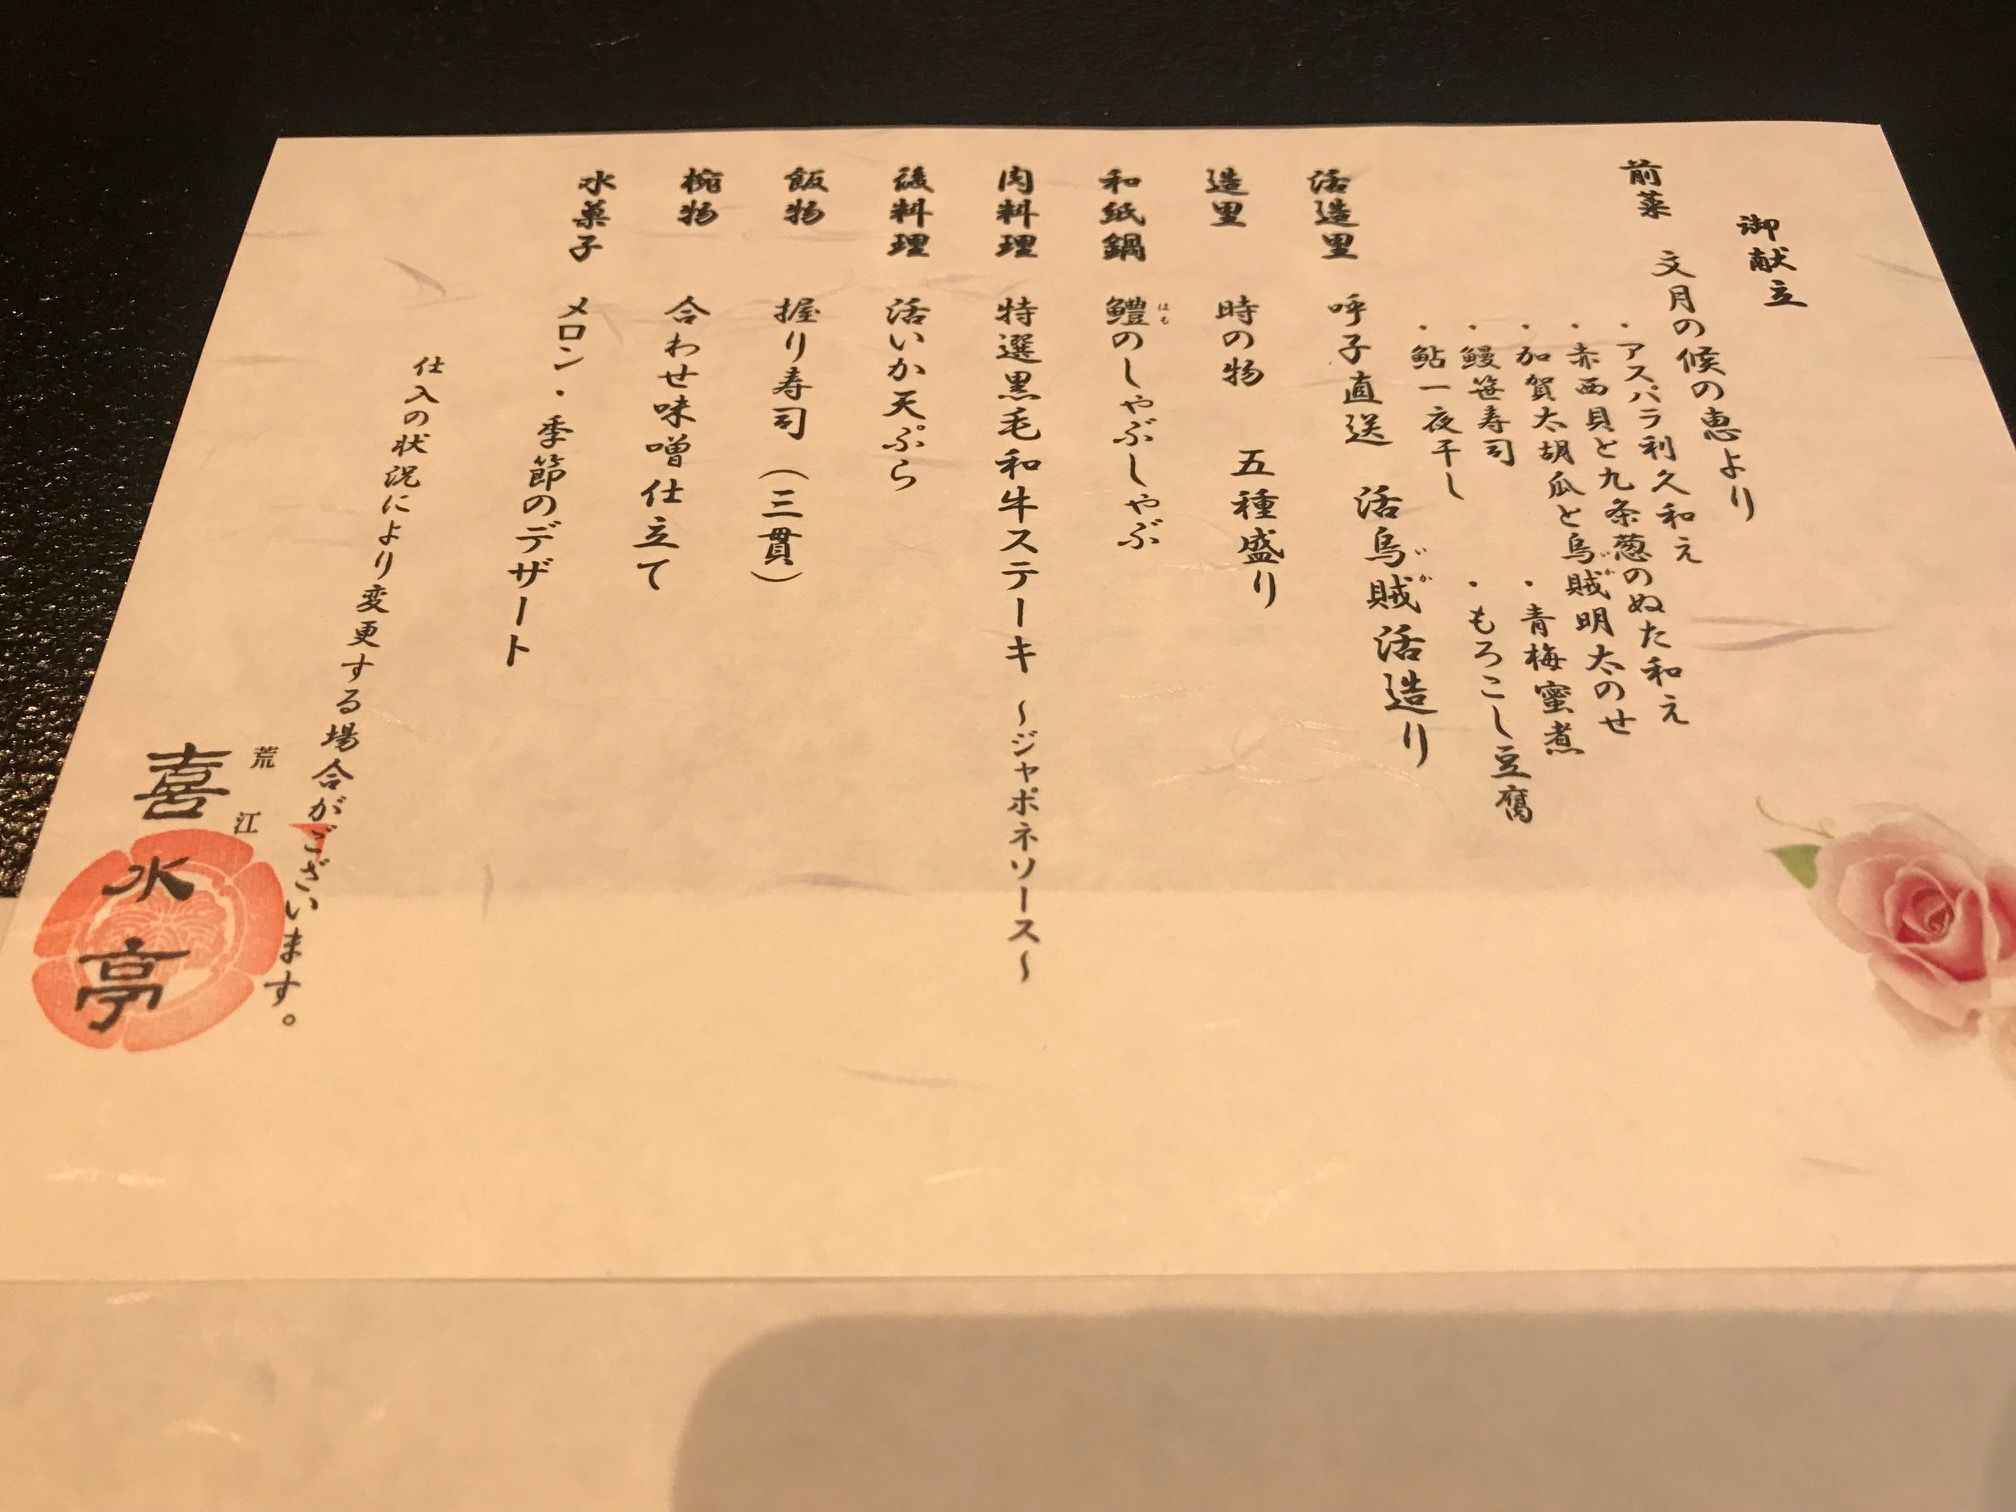 御献立
前菜　文月の候の恵より
・アスパラ利久和え
・赤西貝と九条葱のぬた和え
・加賀太胡瓜と烏賊明太のせ
いか
・鰻笹寿司　・青梅蜜煮
・鮎一夜干し　・もろこし豆腐
活造里　呼子直送　活烏賊活造り
いか
造里　時の物　五種盛り
和紙鍋　鱧のしゃぶしゃぶ
はも
肉料理　特選黒毛和牛ステーキ　～ジャポネソース～
後料理　活いか天ぷら
飯物　握り寿司（三貫）
椀物　合わせ味噌仕立て
水菓子　メロン・季節のデザート
仕入の状況により変更する場合がございます。
荒江
喜水亭